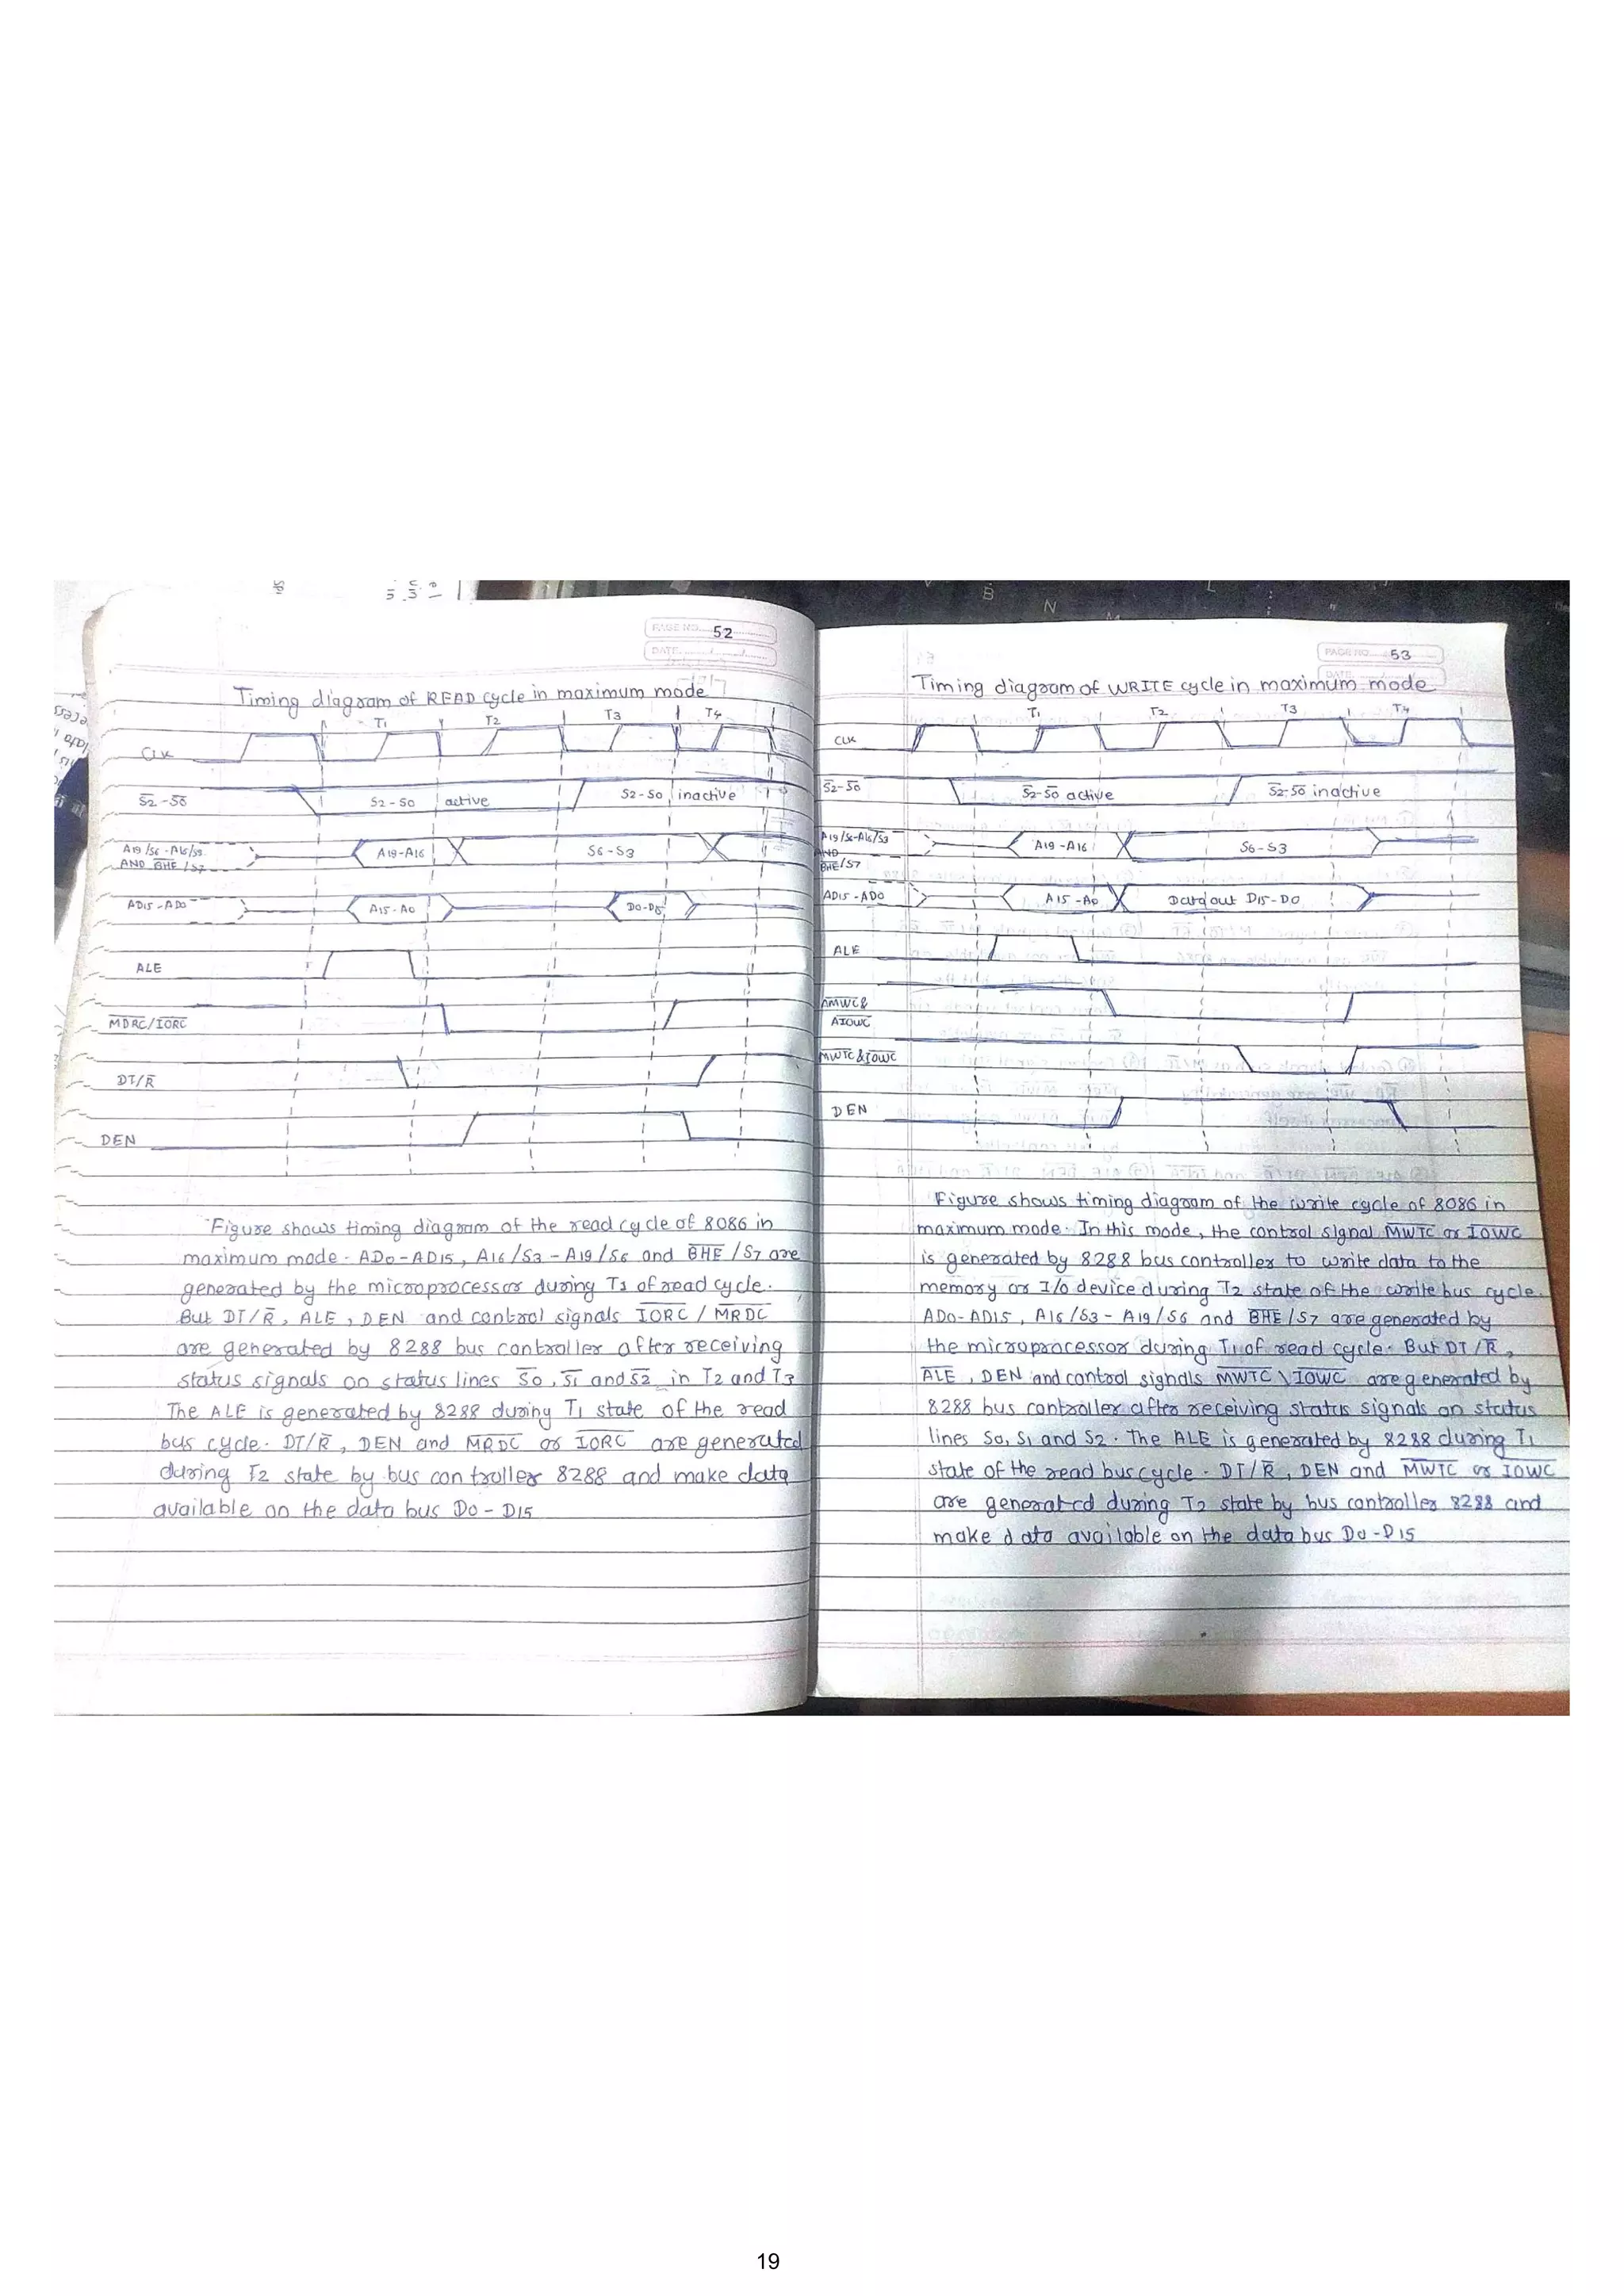 PAGE NO. 52
DATE
Timing diagram of READ cycle in maximum mode
T1 T2 T3 T4
CLK
S̅2̅-S̅0̅ S2-S0 active S2-S0 inactive
A19/S6-A16/S3 A19-A16 S6-S3
AND B̅H̅E̅/S7
AD15-AD0 A15-A0 D0-D15
ALE
M̅D̅R̅C̅/I̅O̅R̅C̅
DT/R̅
DEN
Figure shows timing diagram of the read cycle of 8086 in
maximum mode. AD0-AD15, A16/S3-A19/S6 and B̅H̅E̅/S7 are
generated by the microprocessor during T1 of read cycle.
But DT/R̅, ALE, DEN and control signals I̅O̅R̅C̅/M̅R̅D̅C̅
are generated by 8288 bus controller after receiving
status signals on status lines S̅0̅, S̅1̅ and S̅2̅ in T2 and T3
The ALE is generated by 8288 during T1 state of the read
bus cycle. DT/R̅, DEN and M̅R̅D̅C̅ or I̅O̅R̅C̅ are generated
during T2 state by bus controller 8288 and make data
available on the data bus D0-D15
PAGE NO. 53
DATE
Timing diagram of WRITE cycle in maximum mode
T1 T2 T3 T4
CLK
S̅2̅-S̅0̅ S̅2̅-S̅0̅ active S̅2̅-S̅0̅ inactive
A19/S6-A16/S3 A19-A16 S6-S3
AND
B̅H̅E̅/S7
AD15-AD0 A15-A0 Data out D15-D0
ALE
A̅M̅W̅C̅ &
A̅I̅O̅W̅C̅
M̅W̅T̅C̅ & I̅O̅W̅C̅
DEN
Figure shows timing diagram of the write cycle of 8086 in
maximum mode. In this mode, the control signal M̅W̅T̅C̅ or I̅O̅W̅C̅
is generated by 8288 bus controller to write data to the
memory or I/o device during T2 state of the write bus cycle.
AD0-AD15, A16/S3-A19/S6 and B̅H̅E̅/S7 are generated by
the microprocessor during T1 of read cycle. But DT/R̅,
A̅L̅E̅, DEN and control signals M̅W̅T̅C̅\I̅O̅W̅C̅ are generated by
8288 bus controller after receiving status signals on status
lines S0, S1 and S2. The ALE is generated by 8288 during T1
state of the read bus cycle. DT/R̅, DEN and M̅W̅T̅C̅ or I̅O̅W̅C̅
are generated during T2 state by bus controller 8288 and
make data available on the data bus D0-D15
19